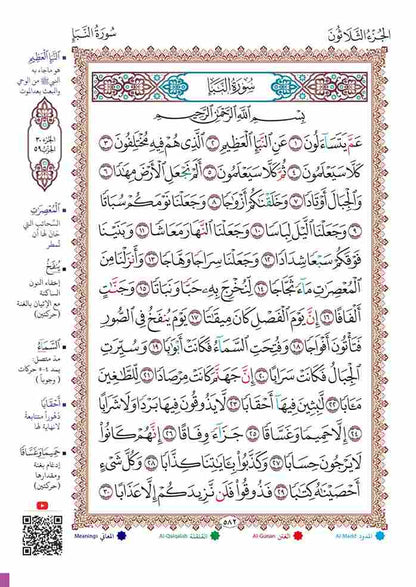 الجُزءُ الثَّلاثُونَ
سُورَةُ النَّبَإِ
سُورَةُ النَّبَإِ
بِسْمِ اللَّهِ الرَّحْمَٰنِ الرَّحِيمِ
عَمَّ يَتَسَاءَلُونَ ١ عَنِ النَّبَإِ الْعَظِيمِ ٢ الَّذِي هُمْ فِيهِ مُخْتَلِفُونَ ٣
كَلَّا سَيَعْلَمُونَ ٤ ثُمَّ كَلَّا سَيَعْلَمُونَ ٥ أَلَمْ نَجْعَلِ الْأَرْضَ مِهَٰدًا ٦
وَالْجِبَالَ أَوْتَادًا ٧ وَخَلَقْنَٰكُمْ أَزْوَٰجًا ٨ وَجَعَلْنَا نَوْمَكُمْ سُبَاتًا
٩ وَجَعَلْنَا الَّيْلَ لِبَاسًا ١٠ وَجَعَلْنَا النَّهَارَ مَعَاشًا ١١ وَبَنَيْنَا
فَوْقَكُمْ سَبْعًا شِدَادًا ١٢ وَجَعَلْنَا سِرَاجًا وَهَّاجًا ١٣ وَأَنزَلْنَا مِنَ
الْمُعْصِرَٰتِ مَاءً ثَجَّاجًا ١٤ لِّنُخْرِجَ بِهِ حَبًّا وَنَبَاتًا ١٥ وَجَنَّٰتٍ
أَلْفَافًا ١٦ إِنَّ يَوْمَ الْفَصْلِ كَانَ مِيقَٰتًا ١٧ يَوْمَ يُنفَخُ فِي الصُّورِ
فَتَأْتُونَ أَفْوَاجًا ١٨ وَفُتِحَتِ السَّمَاءُ فَكَانَتْ أَبْوَٰبًا ١٩ وَسُيِّرَتِ
الْجِبَالُ فَكَانَتْ سَرَابًا ٢٠ إِنَّ جَهَنَّمَ كَانَتْ مِرْصَادًا ٢١ لِّلطَّٰغِينَ
مَـَٔابًا ٢٢ لَّٰبِثِينَ فِيهَا أَحْقَابًا ٢٣ لَّا يَذُوقُونَ فِيهَا بَرْدًا وَلَا شَرَابًا
٢٤ إِلَّا حَمِيمًا وَغَسَّاقًا ٢٥ جَزَاءً وِفَاقًا ٢٦ إِنَّهُمْ كَانُوا
لَا يَرْجُونَ حِسَابًا ٢٧ وَكَذَّبُوا بِـَٔايَٰتِنَا كِذَّابًا ٢٨ وَكُلَّ شَيْءٍ
أَحْصَيْنَٰهُ كِتَٰبًا ٢٩ فَذُوقُوا فَلَن نَّزِيدَكُمْ إِلَّا عَذَابًا ٣٠
٥٨٢
النَّبَإِ الْعَظِيمِ
هو ما جاء به
النبي ﷺ من الوحي
والبعث بعد الموت
الجزء ٣٠
الحزب ٥٩
الْمُعْصِرَٰتِ
السحائب التي
حان لها أن
تمطر
يُنفَخُ
إخفاء النون
الساكنة
مع الإتيان بالغنة
(حركتين)
السَّمَاءُ
مد متصل:
يمد ٤-٥ حركات
(وجوباً)
أَحْقَابًا
دهوراً متتابعة
لا نهاية لها
حَمِيمًا وَغَسَّاقًا
إدغام بغنة
ومقدارها
(حركتين)
المدود Al-Madd
الغنن Al-Gunan
القلقلة Al-Qalqalah
المعاني Meanings